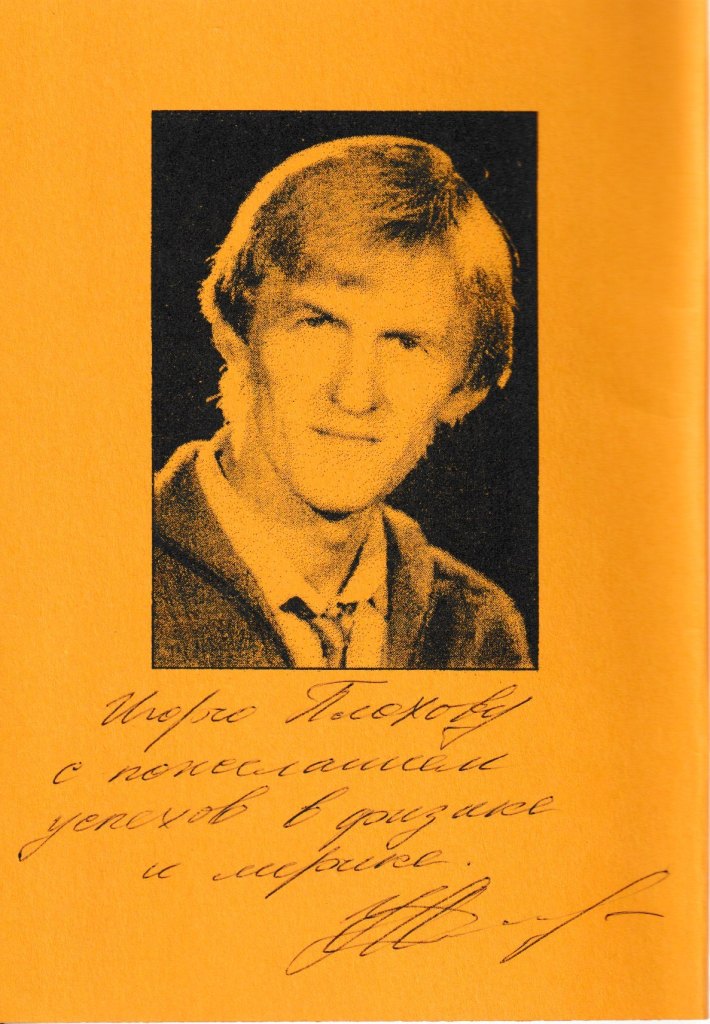 Игорю Плохову
с пожеланием
успехов в физике
и лирике.